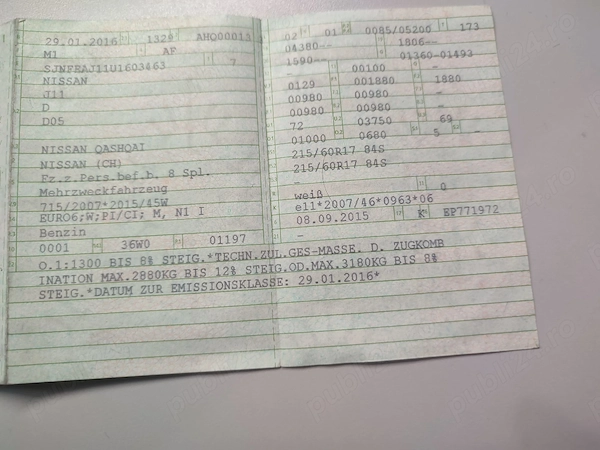 29.01.2016 1329 AHQ00013
M1 AF
SJNFEAJ11U1603463 7
NISSAN
J11
D
D05
NISSAN QASHQAI
NISSAN (CH)
Fz.z.Pers.bef.b. 8 Spl.
Mehrzweckfahrzeug
715/2007*2015/45W
EURO6;W;PI/CI; M, N1 I
Benzin
0001 36W0 01197
O.1:1300 BIS 8% STEIG.*TECHN.ZUL.GES-MASSE. D. ZUGKOMB
INATION MAX.2880KG BIS 12% STEIG.OD.MAX.3180KG BIS 8%
STEIG.*DATUM ZUR EMISSIONSKLASSE: 29.01.2016*
02 01 0085/05200 173
04380-- 1806--
1590-- 01360-01493
- 00100 -
0129 001880 1880
00980 00980 -
00980 00980 -
72 03750 69
01000 0680 5 -
215/60R17 84S
215/60R17 84S
-
-
weiß 0
e11*2007/46*0963*06
08.09.2015 K BP771972
-